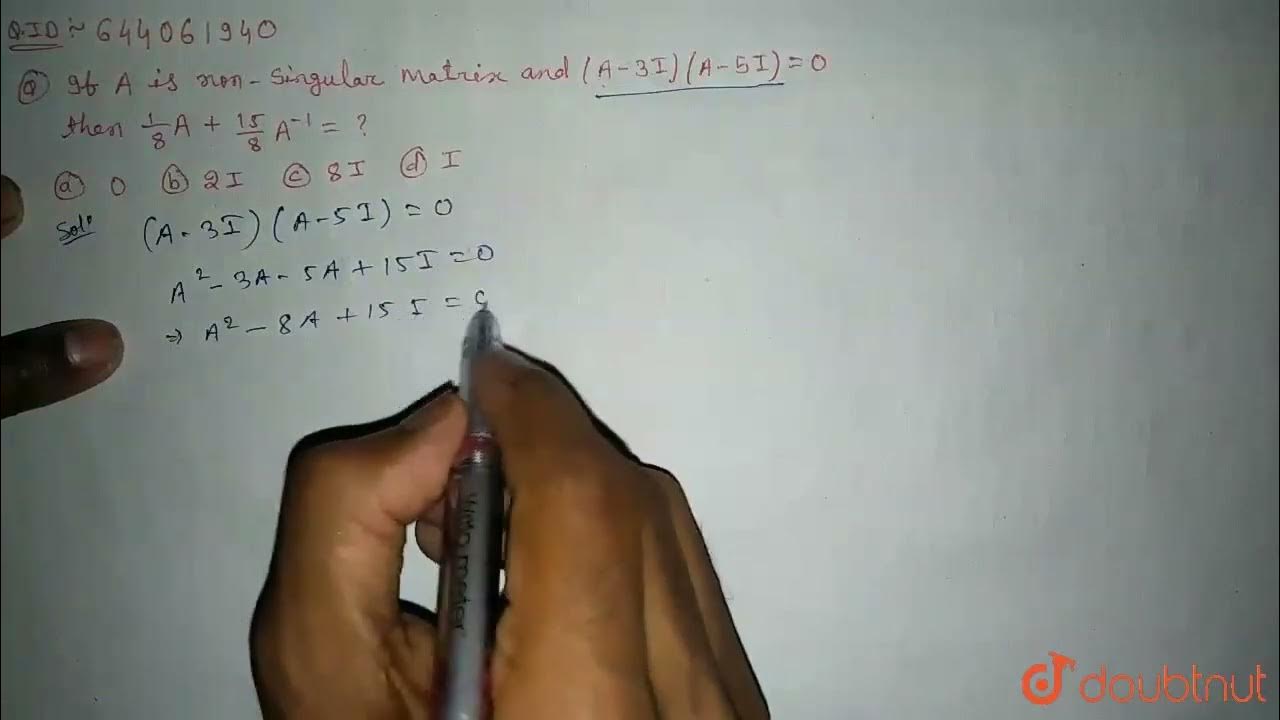 Q.ID :- 644061940
Q If A is non-singular matrix and (A-3I)(A-5I)=0
then 1/8 A + 15/8 A⁻¹ = ?
a 0 b 2I c 8I d I
Solⁿ (A-3I)(A-5I)=0
A²-3A-5A+15I=0
⇒ A²-8A+15I=
doubtnut